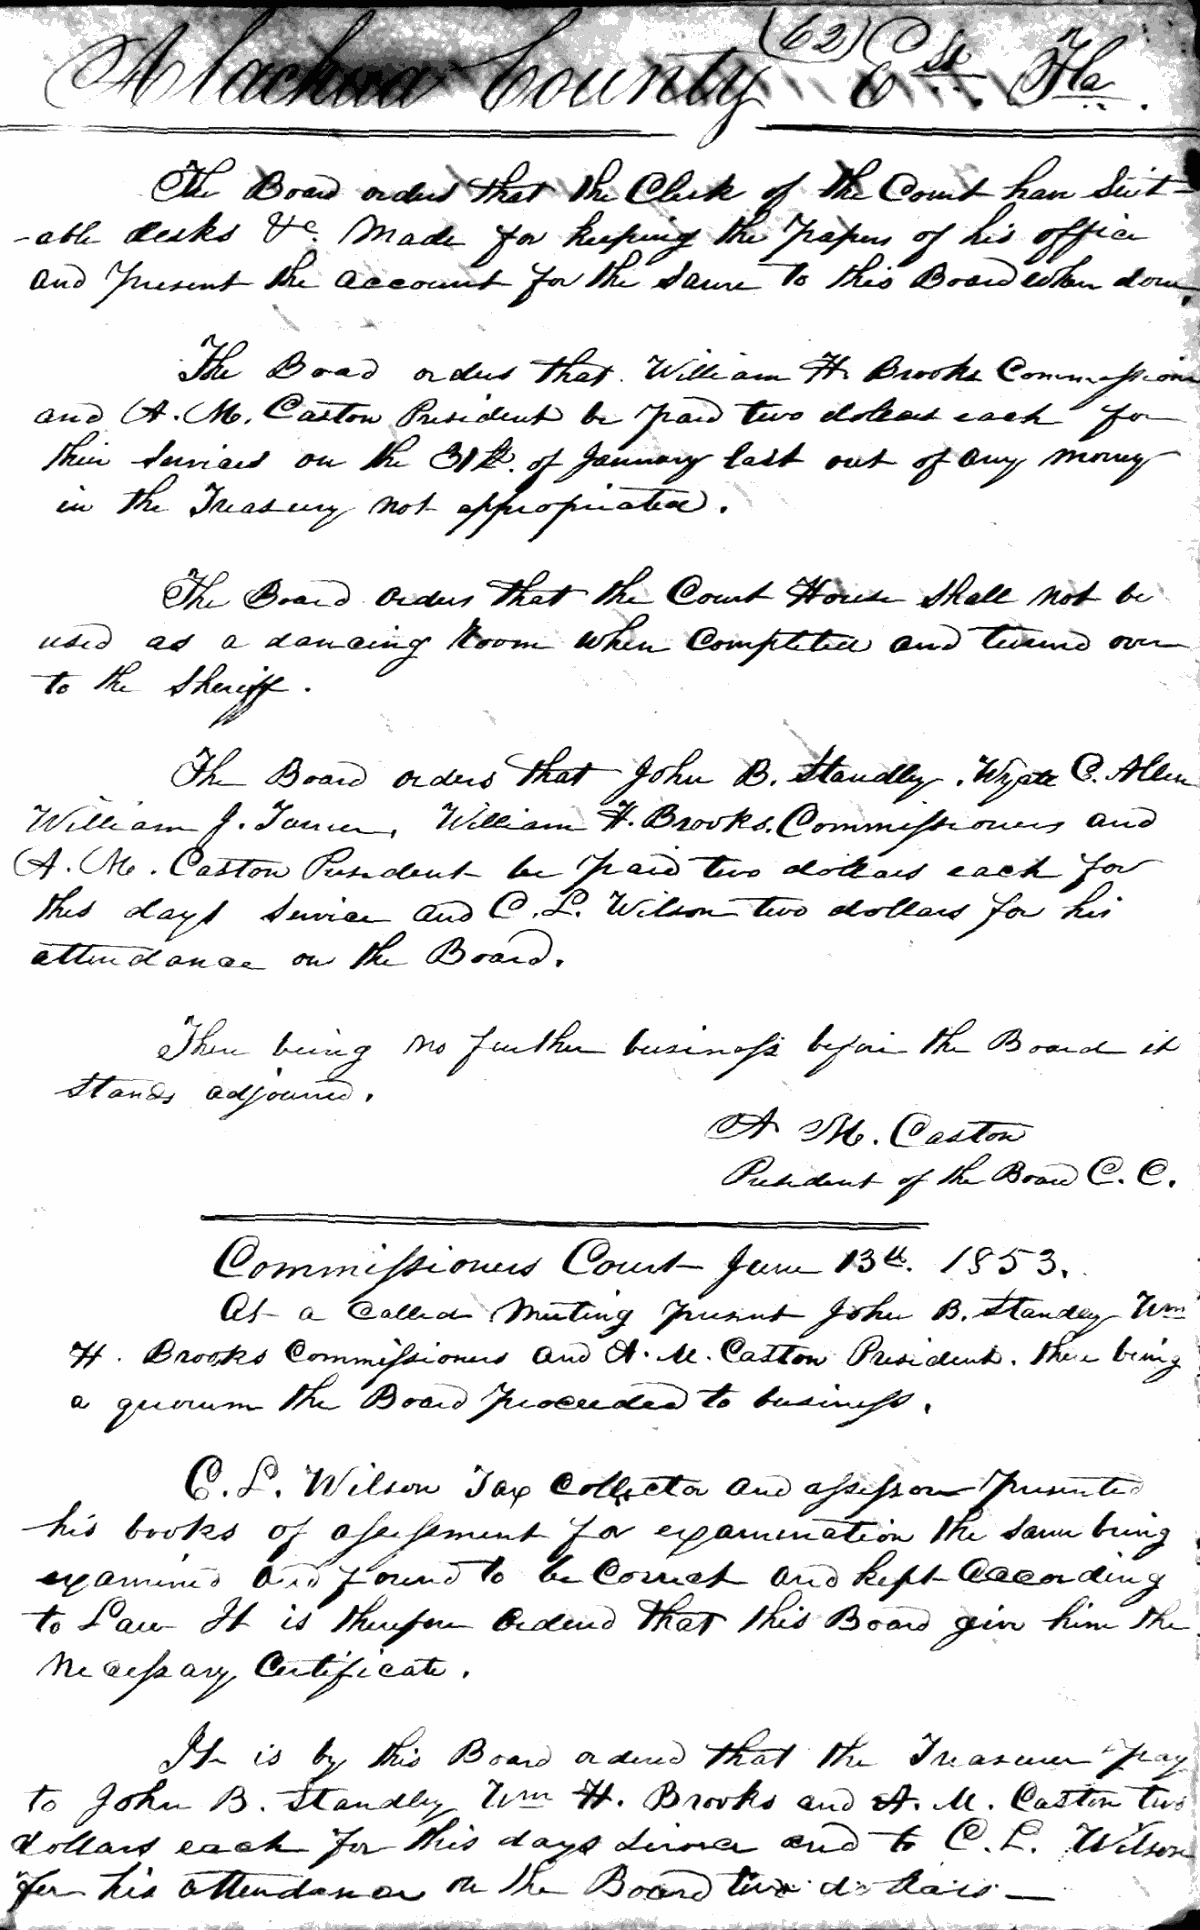 (62)
Alachua County E St. Fla.
The Board orders that the Clerk of the Court have Suit-
-able desks &c. Made for keeping the Papers of his office
and Present the account for the Same to this Board when done.
The Board orders that William H. Brooks Commissioner
and A. M. Caston President be Paid two dollars each for
their Services on the 31st. of January last out of any money
in the Treasury not appropriated.
The Board orders that the Court House Shall not be
used as a dancing Room when Completed and turned over
to the Sheriff.
The Board orders that John B. Standley, Wyatt C. Allen
William J. Turner, William H. Brooks, Commissioners and
A. M. Caston President be Paid two dollars each for
this days Service and C. L. Wilson two dollars for his
attendance on the Board.
There being no further business before the Board it
Stands adjourned.
A M. Caston
President of the Board C. C.
Commissioners Court June 13th. 1853.
At a Called Meeting present John B. Standley Wm
H. Brooks Commissioners and A. M. Caston President. there being
a quorum the Board Proceeded to business.
C. L. Wilson Tax Collector and assessor Presented
his books of assessment for examination the Same being
examined and found to be Correct and kept according
to Law It is therefore Ordered that this Board give him the
Necessary Certificate.
It is by this Board ordered that the Treasurer Pay
to John B. Standley Wm H. Brooks and A. M. Caston two
dollars each for this days Service and to C. L. Wilson
for his attendance on the Board two dollars